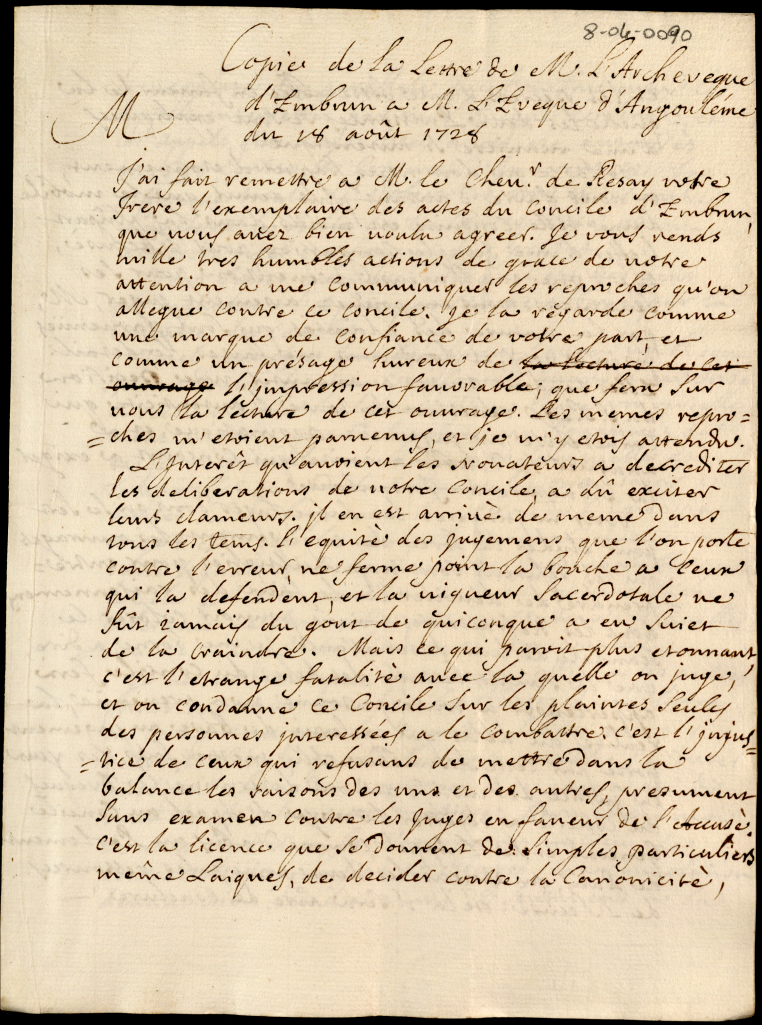 8-06-0090
Copie de la Lettre de M. L'Archeveque
d'Embrun a M. L'Eveque d'Angouléme
M du 18 août 1728
J'ai fait remettre a M. le Cheur. de Resay votre
frere l'exemplaire des actes du Concile d'Embrun,
que vous avez bien voulu agreer. Je vous rends
mille tres humbles actions de grace de votre
attention a me communiquer les reproches qu'on
allegue contre ce concile. je la regarde comme
une marque de confiance de votre part, et
comme un présage hureux de la lecture de cet
ouvrage l'jmpression favorable, que fera sur
vous la lecture de cet ouvrage. Les memes repro=
=ches m'etoient parvenus, et je m'y etois attendu.
L'Interêt qu'avoient les novateurs a decrediter
les deliberations de notre Concile, a dû exciter
leurs clameurs. jl en est arrivè de meme dans
tous les tems. l'equitè des jugemens que l'on porte
contre l'erreur, ne ferme point la bouche a ceux
qui la defendent, et la vigueur Sacerdotale ne
fût jamais du gout de quiconque a eu Suiet
de la craindre. Mais ce qui paroit plus etonnant,
c'est l'etrange fatalitè avec la quelle on juge,
et on condamne ce Concile Sur les plaintes Seules
des personnes jnteressées a le combattre. c'est l'jnjus=
=tice de ceux qui refusans de mettre dans la
balance les raisons des uns et des autres, presument
Sans examen contre les Juges en faveur de l'Accusè.
c'est la licence que Se donnent de Simples particuliers
même Laiques, de decider contre la Canonicitè,